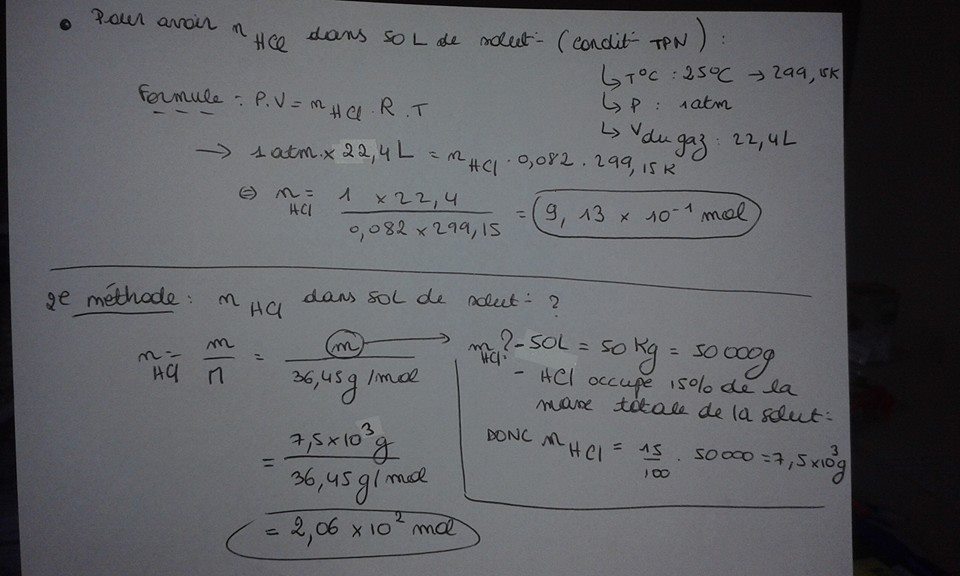 • Pour avoir n HCl dans 50 L de solut- (condit- TPN) :
↳ T°C : 25°C → 299,15K
↳ P : 1atm
↳ V du gaz : 22,4L
Formule : P.V = n HCl . R . T
→ 1 atm × 22,4 L = n HCl . 0,082 . 299,15K
⇔ n HCl = 1 × 22,4 / 0,082 × 299,15 = 9,13 × 10⁻¹ mol
2e méthode : n HCl dans 50L de solut- ?
n HCl = m / M = m / 36,45g/mol
→ m HCl ? - 50L = 50 Kg = 50 000g
- HCl occupe 15% de la
masse totale de la solut-
DONC m HCl = 15/100 . 50 000 = 7,5×10³g
= 7,5×10³ g / 36,45 g/mol
= 2,06 × 10² mol